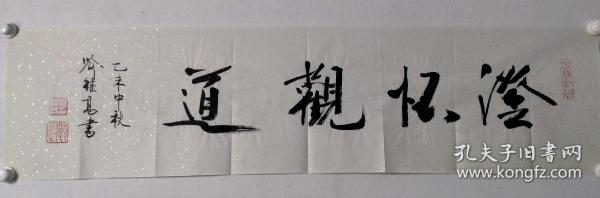 澄怀觀道
乙未中秋
徐德高書
孔夫子旧書网
www.kongfz.com